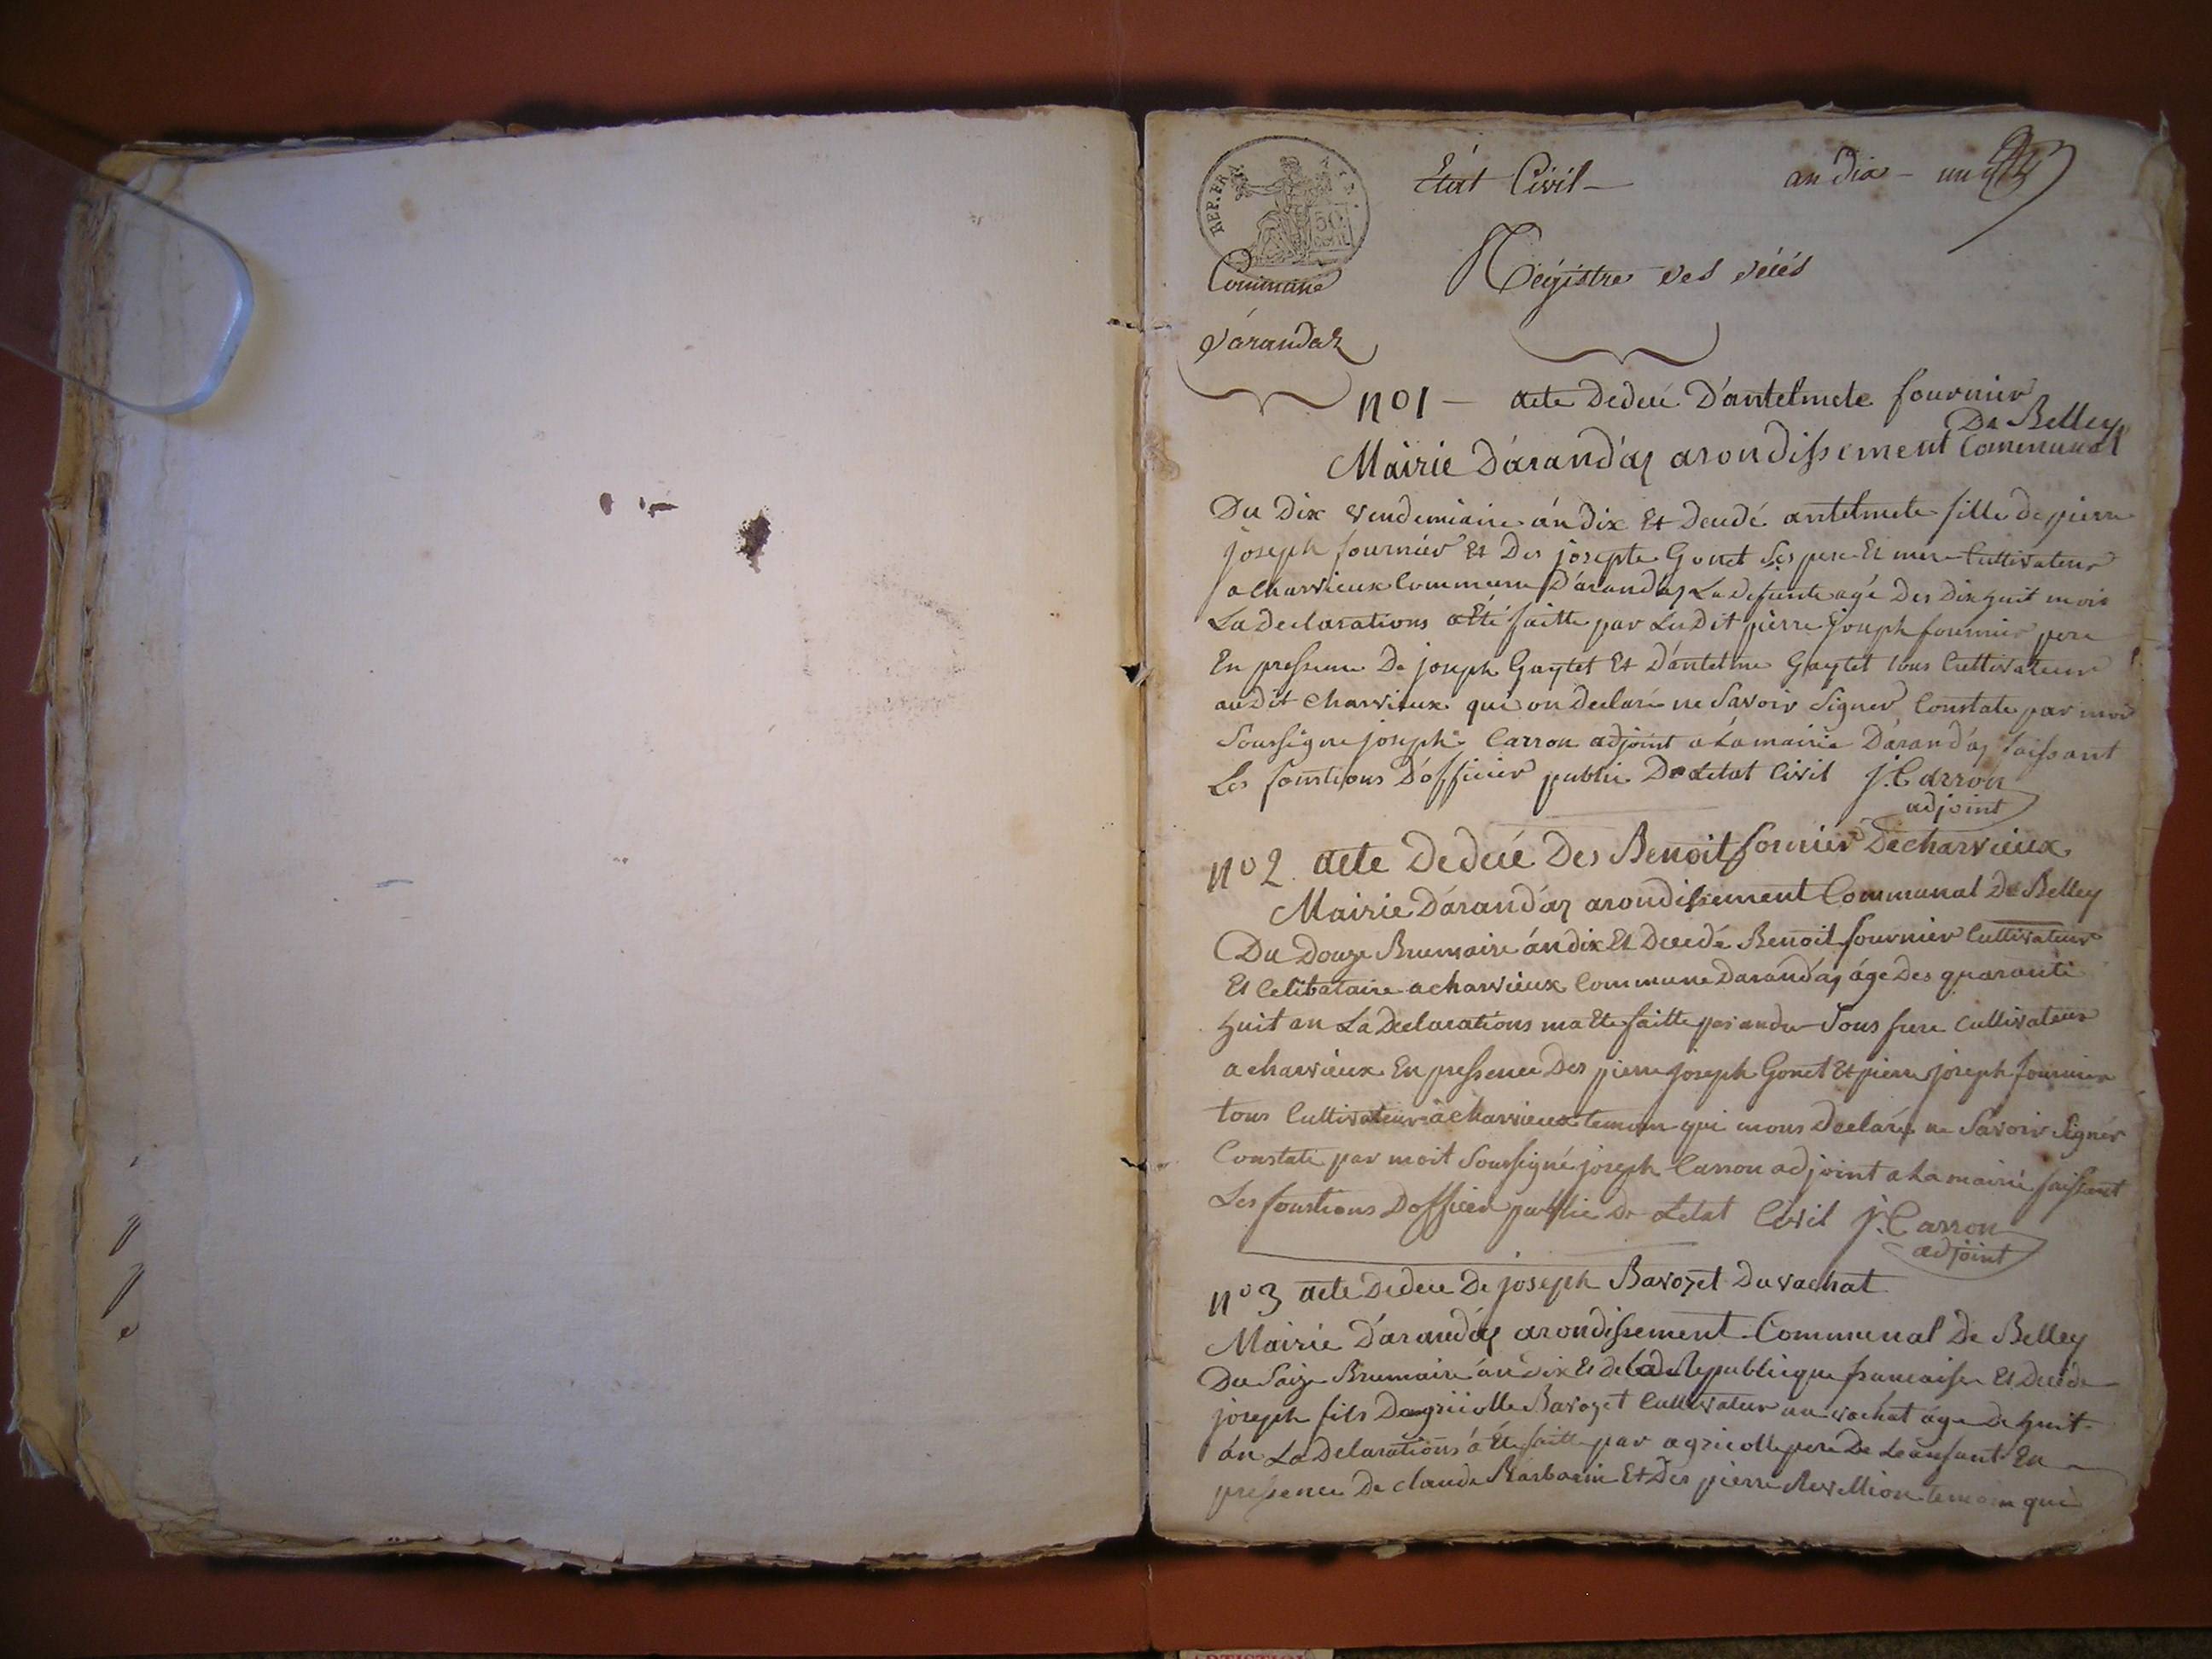 REP. FRA.
50
Etat Civil — an dix — un
Commune Régistre des déiés
d'árandas
no 1 — acte dedecé D'antelmete fournier
De Belley
Mairie D'árandas arondissement Communal
Du Dix vendemiaire án dix Et decedé antelmete fille de pierre
joseph fournier Et Des josepte Gonet Ses pere Et mere Cultivateur
a Charvieux Commune D'árandas La defunte agé Des Dix huit mois
La declarations a Eté faitte par Ledit pierre joseph fournier pere
En pressence De joseph Gaytet Et D'antelme Gaytet tous Cultivateur
audit Charvieux qui on declaré ne Savoir Signer Constate par moi
Soussigne joseph Carron adjoint a La mairie D'árandas faissant
Les fonstions D'officier public De Letat Civil j. Carron
adjoint
no 2. acte Dedecé Des Benoit fornier De charvieux
Mairie D'árandas arondissement Communal De Belley
Du Douze Brumaire án dix Et Decedé Benoit fournier Cultivateur
Et Celibataire a charvieux Commune Darandas áge Des quarante
huit an La Declarations ma Ete faitte par andre Sons frere Cultivateur
a charvieux En pressence Des pierre joseph Gonet Et pierre joseph fournier
tous Cultivateur a Charvieux temoin qui mons declaré ne Savoir Signér
Constate par moit Soussigné joseph Carron adjoint a La mairie faissant
Les fonstions D'officier public De Letat Civil j. Carron
adjoint
no 3 acte Dedece De joseph Bavozet Du vachat
Mairie D'árandas arondissement Communal De Belley
Du Saize Brumaire án dix Et de La Republicque francaisse Et Decede
joseph fils Dagricolle Bavozet Cultivateur au vachat áge De huit
án La Delarations á Eté faitte par agricolle pere De Leanfant En
pressence De claude Barbarin Et Des pierre Revellion temoin qui